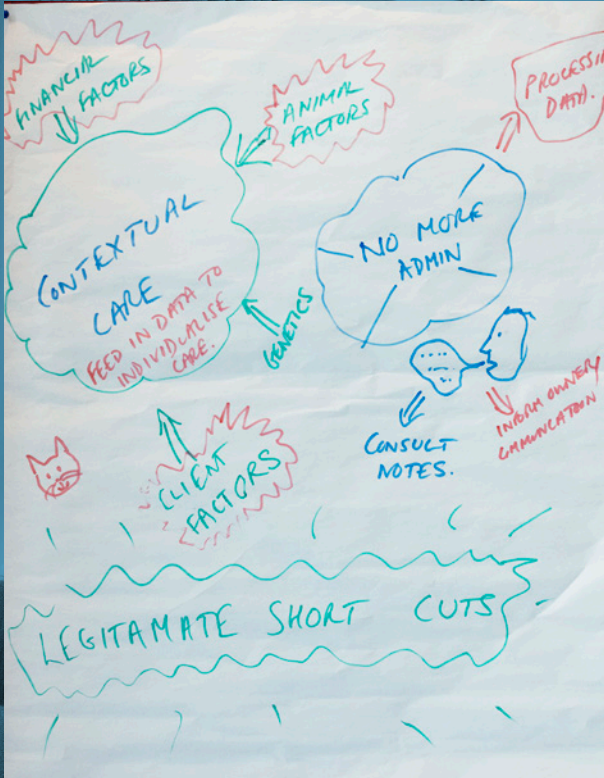 FINANCIAL
FACTORS
ANIMAL
FACTORS
PROCESSING
DATA.
CONTEXTUAL
CARE
FEED IN DATA TO
INDIVIDUALISE
CARE.
GENETICS
NO MORE
ADMIN
CONSULT
NOTES.
INFORM OWNERS
COMMUNICATION
CLIENT
FACTORS
LEGITAMATE SHORT CUTS